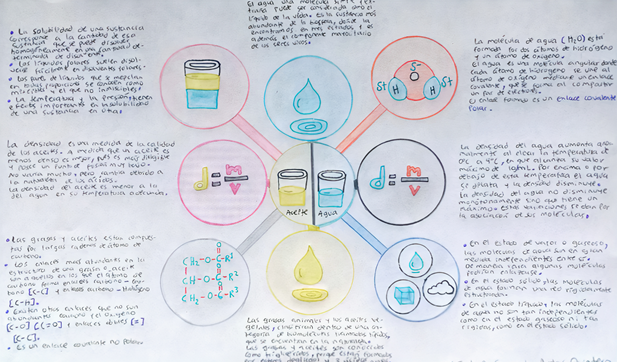 El agua una molécula
líquido de la vida. Es la sustancia más
abundante de la biosfera, dónde la
encontramos en sus tres estados, y es
además el componente mayoritario
de los seres vivos.
• La solubilidad de una sustancia
corresponde a la cantidad de esa
sustancia que se puede disolver
homogéneamente en una cantidad de-
terminada de disolvente.
• Los líquidos polares suelen disol-
verse fácilmente en disolventes polares.
• Los pares de líquidos que se mezclan
en todas proporciones se conocen como
miscibles y el que no inmiscibles
• La temperatura y la presión tienen
efectos importantes en la solubilidad
de una sustancia en otra.
La molécula de agua (H₂O) está
formada por dos átomos de hidrógeno
y un átomo de oxígeno.
El agua es una molécula angular donde
cada átomo de hidrógeno se une al
átomo de oxígeno mediante un enlace
covalente, que se forma al compartir
un par de electrones.
El enlace formado es un enlace covalente
Polar.
δ-
O
δ+ H H δ+
La densidad es una medida de la calidad
de los aceites. A medida que un aceite es
menos denso es mejor, pues es más
y posee un punto de fusión muy bajo.
No varía mucho, pero cambia debido a
la naturaleza de los ácidos.
La densidad del aceite es menor a la
del agua en su temperatura adecuada.
d = m
v
Aceite Agua
d = m
v
La densidad del agua aumenta
al elevar la temperatura de
0°C a 4°C, en que alcanza su valor
máximo de 1g/ml. Por encima o por
debajo de esta temperatura el agua
se dilata y la densidad disminuye.
La densidad del agua no disminuye
monótonamente sino que tiene un
máximo. Estas variaciones se dan por
la asociación de las moléculas.
• Las grasas y aceites están compues-
tos por largas cadenas de átomos de
carbono.
• Los enlaces más abundantes en la
estructura de una grasa o aceite
son aquellos en los que el átomo de
carbono forma enlaces carbono - car-
bono [C-C] y enlaces carbono - hidrógeno
[C-H].
• Existen otros enlaces que no son
abundantes carbono - oxígeno
[C-O] [C=O] y enlaces dobles [=]
[C-C].
• Es un enlace covalente no Polar
O
CH₂-O-C-R¹
O
CH-O-C-R²
O
CH₂-O-C-R³
• En el estado de vapor o gaseoso,
las moléculas de agua son en gran
medida independientes entre sí.
De manera que algunas moléculas
podrían enlazarse.
• En el estado sólido, las moléculas
de agua forman una red regularmente
estructurada.
• En el estado líquido, las moléculas
de agua no son tan independientes
como en el estado gaseoso ni tan
rígidas, como en el estado sólido.
Las grasas animales y los aceites ve-
getales, consisten dentro de una
categoría de moléculas llamadas lípidos,
que se encuentran en la naturaleza.
Las grasas y aceites son conocidas
como triglicéridos, porque están formadas